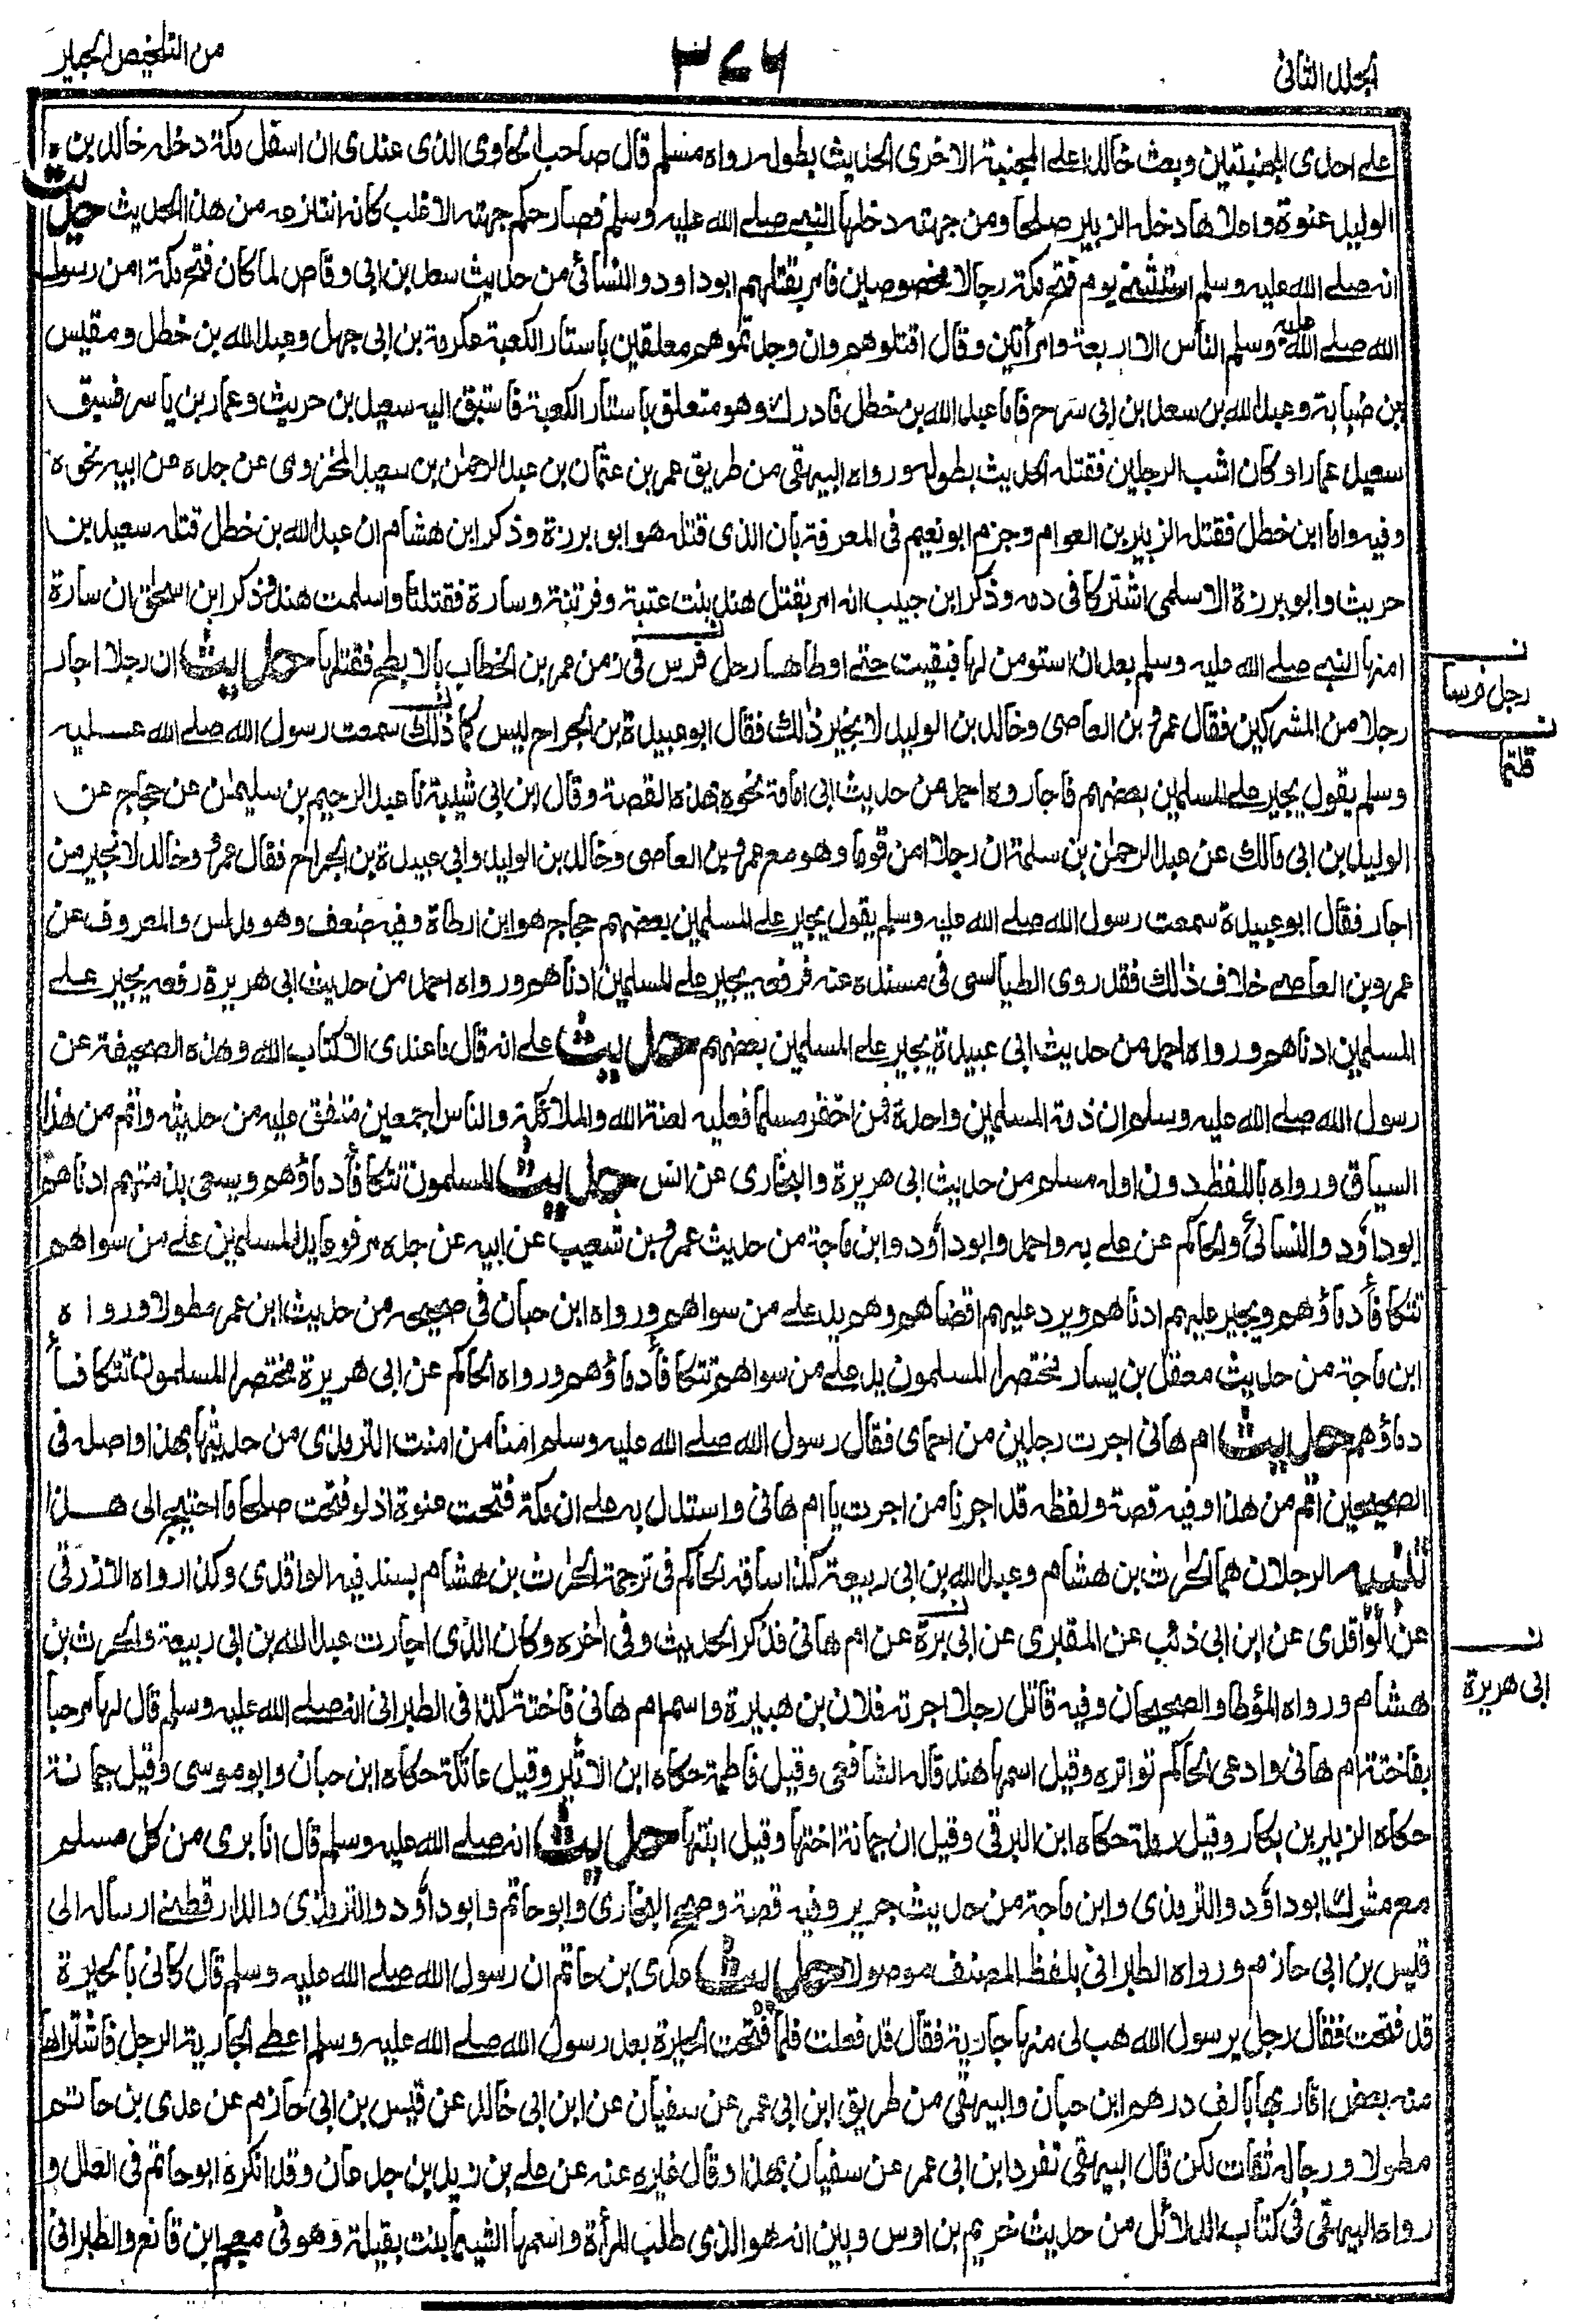 المجلد الثانى
٣٧٦
من التلخيص الحبير
على احدى المجنبتين وبعث خالدا على المجنبة الاخرى الحديث بطوله رواه مسلم قال صاحب الحاوى الذى عندى ان اسفل مكة دخله خالد بن
الوليد عنوة واعلاها دخله الزبير صلحا ومن جهته دخلها النبى صلى الله عليه وسلم فصار حكم جهته الاغلب كانه انتزعه من هذا الحديث حديث
انه صلى الله عليه وسلم استثنى يوم فتح مكة رجالا مخصوصين فامر بقتلهم ابوداود والنسائى من حديث سعد بن ابى وقاص لما كان فتح مكة امن رسول
الله صلى الله عليه وسلم الناس الا اربعة وامرأتين وقال اقتلوهم وان وجدتموهم معلقين باستار الكعبة عكرمة بن ابى جهل وعبد الله بن خطل ومقيس
بن ضبابة وعبد الله بن سعد بن ابى سرح فاما عبد الله بن خطل فادرك وهو متعلق باستار الكعبة فاستبق اليه سعيد بن حريث وعمار بن ياسر فسبق
سعيد عمارا وكان اشب الرجلين فقتله الحديث بطوله ورواه البيهقى من طريق عمر بن عثمان بن عبد الرحمٰن بن سعيد المخزومى عن جده عن ابيه نحوه
وفيه واما ابن خطل فقتله الزبير بن العوام وجزم ابو نعيم فى المعرفة بان الذى قتله هو ابو برزة وذكر ابن هشام ان عبد الله بن خطل قتله سعيد بن
حريث وابو برزة الاسلمى اشتركا فى دمه وذكر ابن حبيب انه امر بقتل هند بنت عتبة وفرتنة وسارة فقتلتا واسلمت هند وذكر ابن اسحٰق ان سارة
امنها النبى صلى الله عليه وسلم بعد ان استومن لها فبقيت حتى اوطاها رجل فرس فى زمن عمر بن الخطاب بالابطح فقتلها حديث ان رجلا اجار
رجلا من المشركين فقال عمرو بن العاصى وخالد بن الوليد لا يجير ذٰلك فقال ابو عبيدة بن الجراح ليس كما ذٰلك سمعت رسول الله صلى الله عليه
وسلم يقول يجير على المسلمين بعضهم فاجاروه احمد من حديث ابى امامة نحوه بهذه القصة وقال ابن ابى شيبة نا عبد الرحيم بن سليمٰن عن حجاج عن
الوليد بن ابى مالك عن عبد الرحمٰن بن سلمة ان رجلا امن قوما وهو مع عمرو بن العاصى وخالد بن الوليد وابى عبيدة بن الجراح فقال عمرو وخالد لا نجير من
اجار فقال ابو عبيدة سمعت رسول الله صلى الله عليه وسلم يقول يجير على المسلمين بعضهم حجاج هو ابن ارطاة وفيه ضعف وهو مدلس والمعروف عن
عمرو بن العاصى خلاف ذٰلك فقد روى الطيالسى فى مسنده عنه فرفعه يجير على المسلمين ادناهم ورواه احمد من حديث ابى هريرة رفعه يجير على
المسلمين ادناهم ورواه احمد من حديث ابى عبيدة يجير على المسلمين بعضهم حديث على انه قال ما عندى الا كتاب الله وهذه الصحيفة عن
رسول الله صلى الله عليه وسلم ان ذمة المسلمين واحدة فمن اخفر مسلما فعليه لعنة الله والملائكة والناس اجمعين متفق عليه من حديثه واتم من هذا
السياق ورواه باللفظ دون اوله مسلم من حديث ابى هريرة والبخارى عن انس حديث المسلمون تتكافأ دماؤهم ويسعى بذمتهم ادناهم
ابوداؤد والنسائى والحاكم عن على به واحمد وابوداؤد وابن ماجة من حديث عمرو بن شعيب عن ابيه عن جده مرفوعا يد المسلمين على من سواهم
تتكافأ دماؤهم ويجير عليهم ادناهم ويرد عليهم اقصاهم وهم يد على من سواهم ورواه ابن حبان فى صحيحه من حديث ابن عمر مطولا ورواه
ابن ماجة من حديث معقل بن يسار مختصرا المسلمون يد على من سواهم تتكافأ دماؤهم ورواه الحاكم عن ابى هريرة مختصرا المسلمون تتكافأ
دماؤهم حديث ام هانى اجرت رجلين من احمائى فقال رسول الله صلى الله عليه وسلم امنا من امنت الترمذى من حديثها بهذا واصله فى
الصحيحين اتم من هذا وفيه قصة ولفظه قد اجرنا من اجرت يا ام هانى واستدل به على ان مكة فتحت عنوة اذ لو فتحت صلحا ما احتيج الى هذا
تنبيه الرجلان هما الحٰرث بن هشام وعبد الله بن ابى ربيعة كذا ساقه الحاكم فى ترجمة الحٰرث بن هشام بسند فيه الواقدى وكذا رواه الازرقى
عن الواقدى عن ابن ابى ذئب عن المقبرى عن ابى برة عن ام هانى فذكر الحديث وفى اٰخره وكان الذى اجارت عبد الله بن ابى ربيعة والحٰرث بن
هشام ورواه المؤطا والصحيحان وفيه قاتل رجلا اجرته فلان بن هبيرة واسم ام هانى فاختة كذا فى الطبرانى انه صلى الله عليه وسلم قال لها مرحبا
بفاختة ام هانى وادعى الحاكم تواتره وقيل اسمها هند قاله الشافعى وقيل فاطمة حكاه ابن الاثير وقيل عاتكة حكاه ابن حبان وابو موسى وقيل جمانة
حكاه الزبير بن بكار وقيل رملة حكاه ابن البرقى وقيل ان جمانة اختها وقيل ابنتها حديث انه صلى الله عليه وسلم قال انا برى من كل مسلم
مع مشرك ابوداؤد والترمذى وابن ماجة من حديث جرير وفيه قصة وصحح البخارى وابو حاتم وابوداؤد والترمذى والدارقطنى ارساله الى
قيس بن ابى حازم ورواه الطبرانى بلفظ المصنف موصولا حديث عدى بن حاتم ان رسول الله صلى الله عليه وسلم قال كانى بالحيرة
قد فتحت فقال رجل يرسول الله هب لى منها جارية فقال قد فعلت فلما فتحت الحيرة بعد رسول الله صلى الله عليه وسلم اعطى الجارية الرجل فاشتراها
منه بعض اقاربها بالف درهم ابن حبان والبيهقى من طريق ابن ابى عمر عن سفيان عن ابن ابى خالد عن قيس بن ابى حازم عن عدى بن حاتم
مطولا ورجاله ثقات لكن قال البيهقى تفرد ابن ابى عمر عن سفيان بهذا وقال غيره عنه عن على بن زيد بن جدعان وقد انكره ابو حاتم فى العلل و
رواه البيهقى فى كتاب الدلائل من حديث خريم بن اوس وبين انه هو الذى طلب المرأة واسمها الشيما بنت بقيلة وهو فى معجم ابن قانع والطبرانى
ن
رجل فرسا
ن
قلتما
ن
ابى هريرة